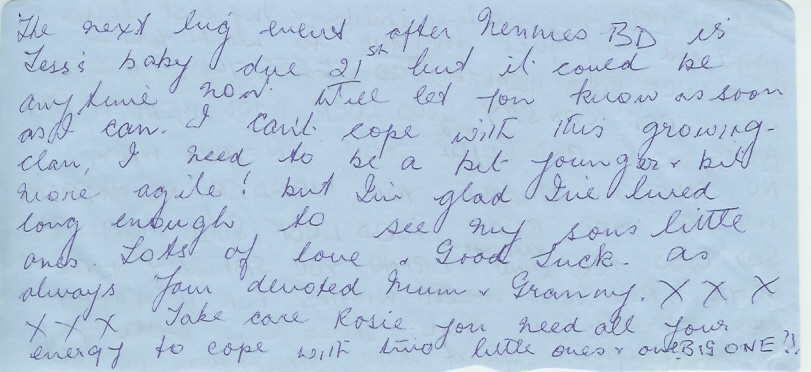 The next big event after Nennies BD is
Tess's baby due 21st but it could be
anytime now. Will let you know as soon
as I can. I can't cope with this growing-
clan, I need to be a bit younger & bit
more agile! but I'm glad I've lived
long enough to see my sons little
ones. Lots of love & Good Luck. as
always Your devoted Mum & Granny. X X X
X X X Take care Rosie you need all your
energy to cope with two little ones & one BIG ONE?!!